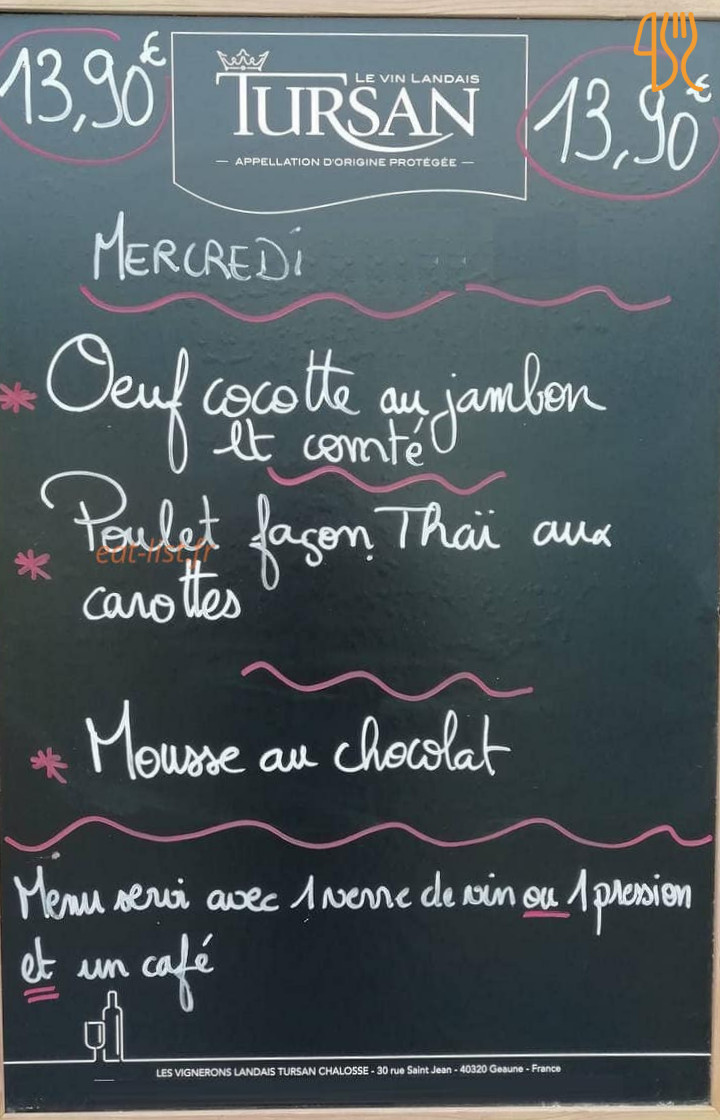 13,90€
LE VIN LANDAIS
TURSAN
— APPELLATION D'ORIGINE PROTÉGÉE —
13,90€
MERCREDI
* Oeuf cocotte au jambon
et comté
* Poulet façon Thaï aux
eat-list.fr
carottes
* Mousse au chocolat
Menu servi avec 1 verre de vin ou 1 pression
et un café
LES VIGNERONS LANDAIS TURSAN CHALOSSE - 30 rue Saint Jean - 40320 Geaune - France